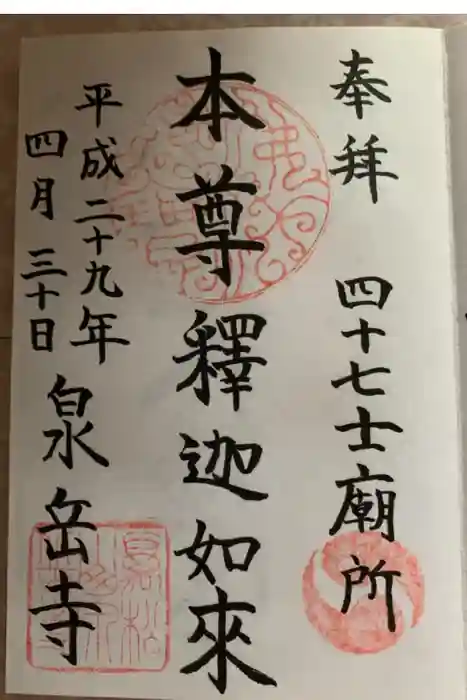 奉拜 四十七士廟所
本尊釋迦如來
平成二十九年
四月三十日
泉岳寺